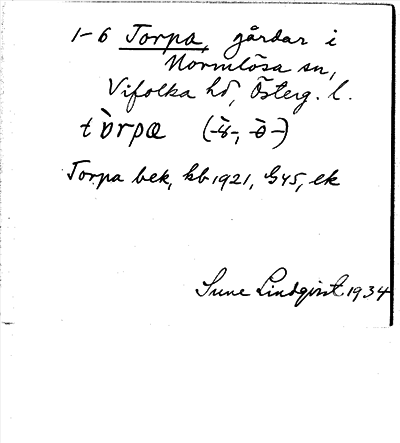 1-6 Torpa, gårdar i
Normlösa sn,
Vifolka hd, Österg. l.
tòrpa
Torpa bek, kb 1921, G45, ek
Sune Lindqvist 1934